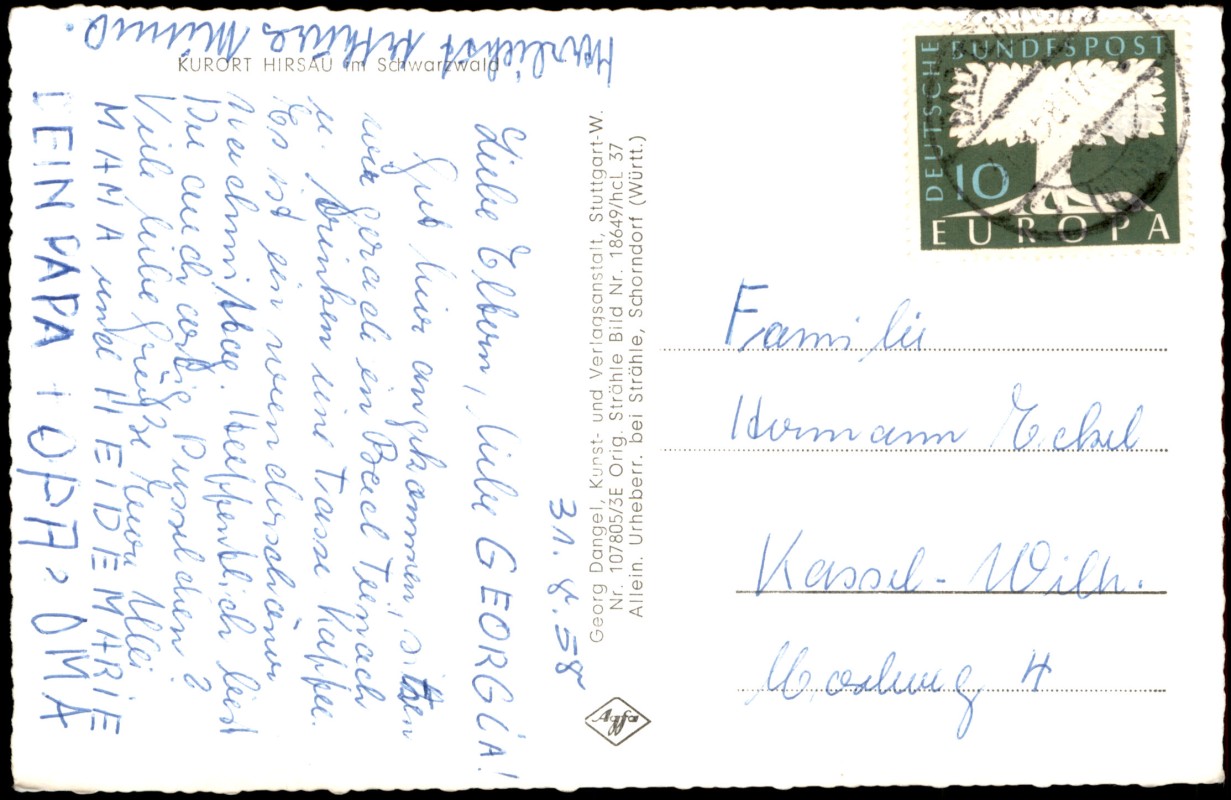 KURORT HIRSAU im Schwarzwald
31. 8. 58
Liebe Eltern, liebe GEORGIA!
Gut hier angekommen, sitzen
wir gerade in Bad Teinach
u. trinken eine Tasse Kaffee.
Es ist ein wunderschöner
Nachmittag. Hoffentlich bist
Du auch artig Pusselchen?
Viele liebe Grüße Euer Ulli
MAMA und HEIDEMARIE
DEIN PAPA OPA OMA
Herzlichst
Georg Dangel, Kunst- und Verlagsanstalt, Stuttgart-W.
Nr. 107805/3E Orig. Strähle Bild Nr. 18649/hcL 37
Allein. Urheberr. bei Strähle, Schorndorf (Württ.)
Agfa
DEUTSCHE BUNDESPOST
10
EUROPA
Familie
Hermann Eckel
Kassel-Wilh.
4